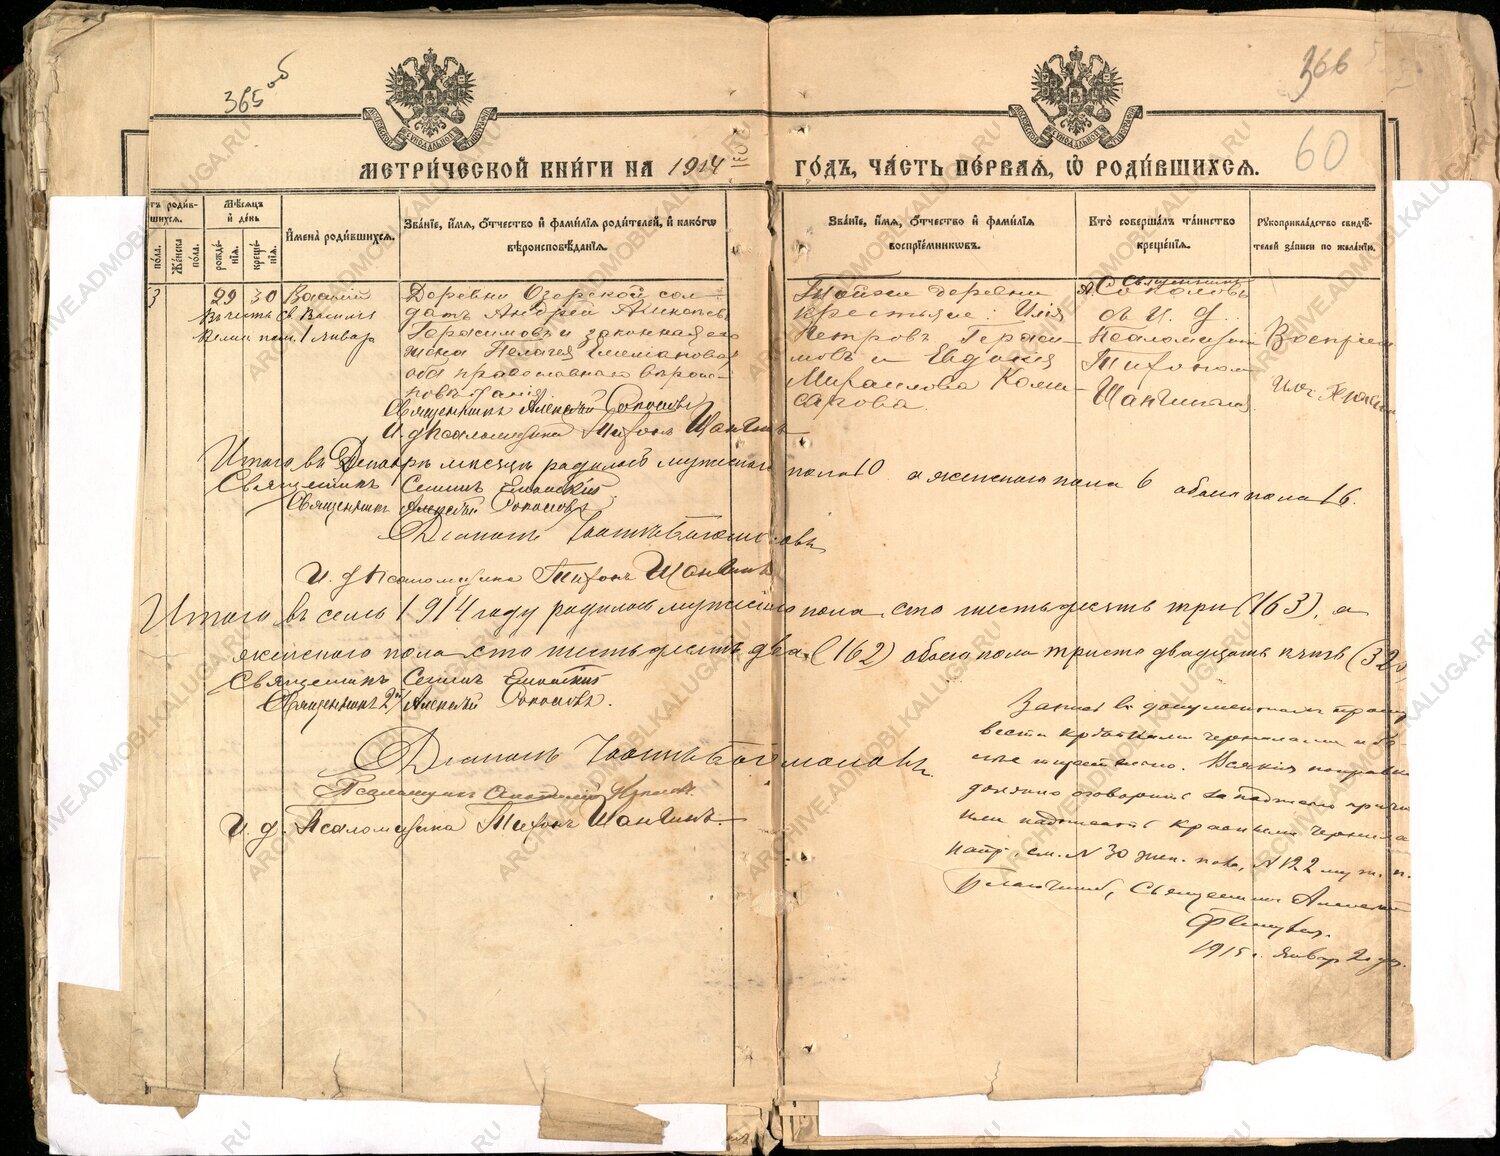 365 об
366
60
МЕТРИЧЕСКОЙ КНИГИ НА 1914 ГОДЪ, ЧАСТЬ ПЕРВАЯ, Ѡ РОДИВШИХСЯ.
Мѣсяцъ и день
рожденія.
крещенія.
Женска пола.
Имена родившихся.
Званіе, имя, отчество и фамилія родителей, и какогѡ вѣроисповѣданія.
Званіе, имя, отчество и фамилія воспріемниковъ.
Кто совершалъ таинство крещенія.
Рукоприкладство свидѣтелей записи по желанію.
3
29 30 Василій
въ честь Св. Василія
Велик. пам. 1 Января
Деревни Озерской сол-
датъ Андрей Алексѣевъ
Герасимовъ и законная его
жена Пелагея
оба православнаго вѣроис-
повѣданія.
Тойже деревни
крестьяне: Илія
Петровъ Гераси-
мовъ и Евдокія
Михаилова Коми-
сарова.
Священникъ
А. Соколовъ
съ И. д.
Псаломщик
Тихономъ
Шангинымъ
Воспріем
Священникъ Алексѣй Соколовъ
И. д. Псаломщика Тихонъ Шангинъ
Итого въ Декабрѣ мѣсяцѣ родилось мужескаго пола 10 а женскаго пола 6 обоего пола 16.
Священникъ Семенъ
Священникъ Алексѣй Соколовъ
Діаконъ Іоаннъ Богомоловъ
И. д. Псаломщика Тихонъ Шангинъ
Итого въ семъ 1914 году родилось мужескаго пола сто шестьдесятъ три (163), а
женскаго пола сто шестьдесятъ два (162) обоего пола триста двадцать пять (325
Священникъ Семенъ
Священникъ 2й Алексѣй Соколовъ.
Діаконъ Іоаннъ Богомоловъ.
Псаломщикъ
И. д. Псаломщика Тихонъ Шангинъ.
Записи въ документахъ
чернилами и
Всякія поправки
должно оговорить за подписью причта
или надписать красными чернила
напр. см. № 30 жен. пола, № 122 муж. п.
Благочинный, Священникъ Алексѣй
1915 г. Январ 2 дн.
ARCHIVE.ADMOBLKALUGA.RU